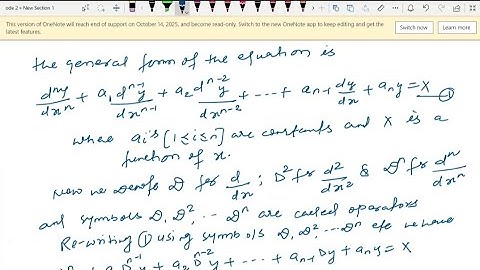 ode 2 » New Section 1
This version of OneNote will reach end of support on October 14, 2025, and become read-only. Switch to the new OneNote app to keep editing and get the latest features.
Switch now
Learn more
the general form of the equation is
dⁿy/dxⁿ + a₁ dⁿ⁻¹y/dxⁿ⁻¹ + a₂ dⁿ⁻²y/dxⁿ⁻² + --- + aₙ₋₁ dy/dx + aₙy = X —①
where aᵢ's [1≤i≤n] are constants and X is a
function of x.
Now we denote D for d/dx ; D² for d²/dx² & Dⁿ for dⁿ/dxⁿ
and symbols D, D², -- Dⁿ are called operators
Re-writing ① using symbols D, D², -- Dⁿ etc we have
Dⁿ⁻¹y + a₂Dⁿ⁻²y + --- + aₙ₋₁Dy + aₙy = X